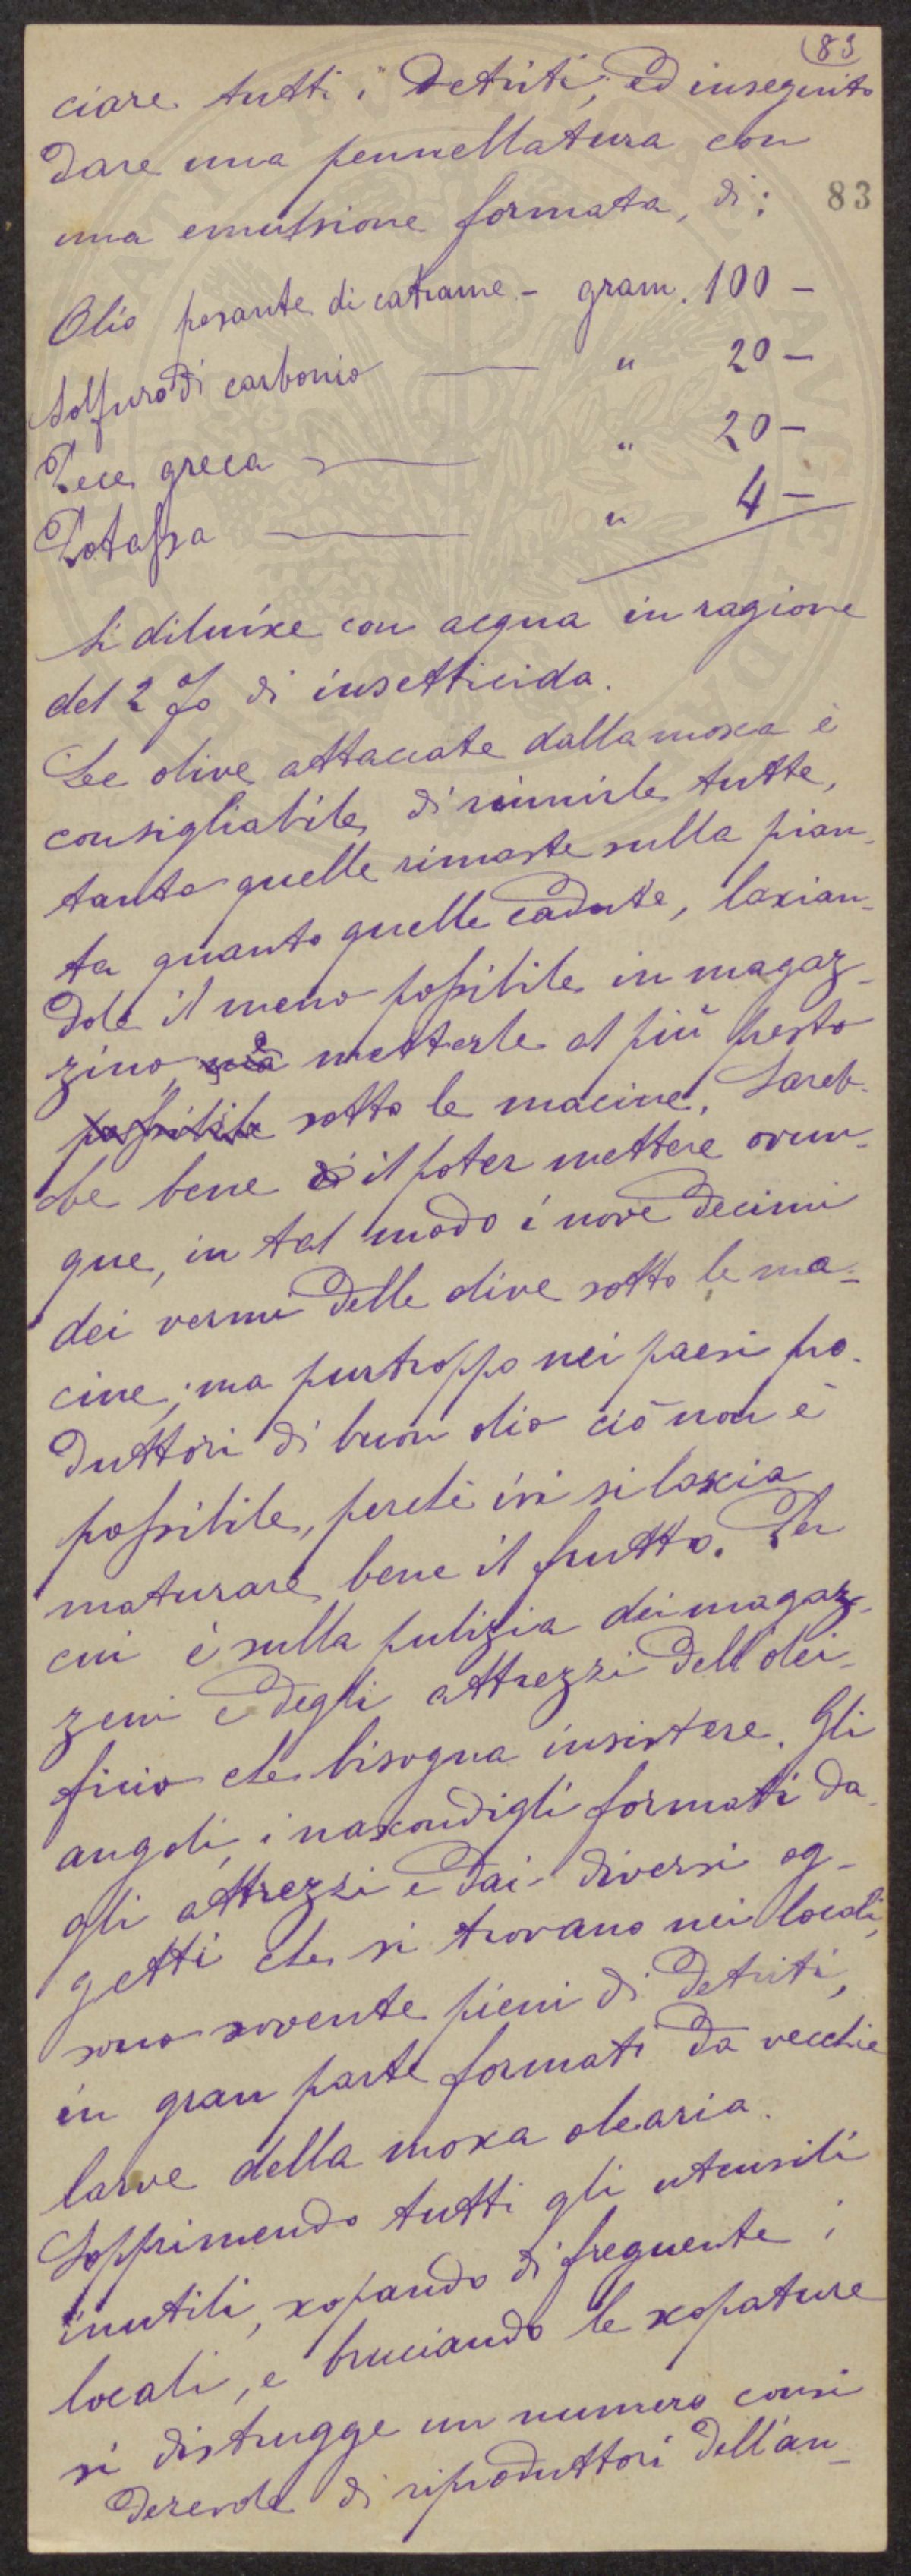 83
ciare tutti i detriti, ed inseguito
dare una pennellatura con
83
una emulsione formata, di:
Olio pesante di catrame - gram. 100 -
Solfuro di carbonio — " 20 -
Pece greca — " 20 -
Potassa — " 4 -
Si diluisce con acqua in ragione
del 2 % di insetticida.
Lee olive attaccate dalla mosca è
consigliabile di riunirle tutte,
tanto quelle rimaste sulla pian-
ta quanto quelle cadute, lascian-
dole il meno possibile in magaz-
zino, e metterle al più presto
possibile sotto le macine. Sareb-
be bene il poter mettere ovun-
que, in tal modo i nove decimi
dei vermi delle olive sotto le ma-
cine; ma purtroppo nei paesi pro-
duttori di buon olio ciò non è
possibile, perchè ivi si lascia
maturare bene il frutto. Per
cui è sulla pulizia dei magaz-
zeni e degli attrezzi dell'olei-
ficio che bisogna insistere. Gli
angoli, i nascondigli formati da-
gli attrezzi e dai diversi og-
getti che si trovano nei locali,
sono sovente pieni di detriti,
in gran parte formati da vecchie
larve della mosca olearia.
Sopprimendo tutti gli utensili
inutili, scopando di frequente i
locali, e bruciando le scopature
si distrugge un numero consi
derevole di riproduttori dell'an-